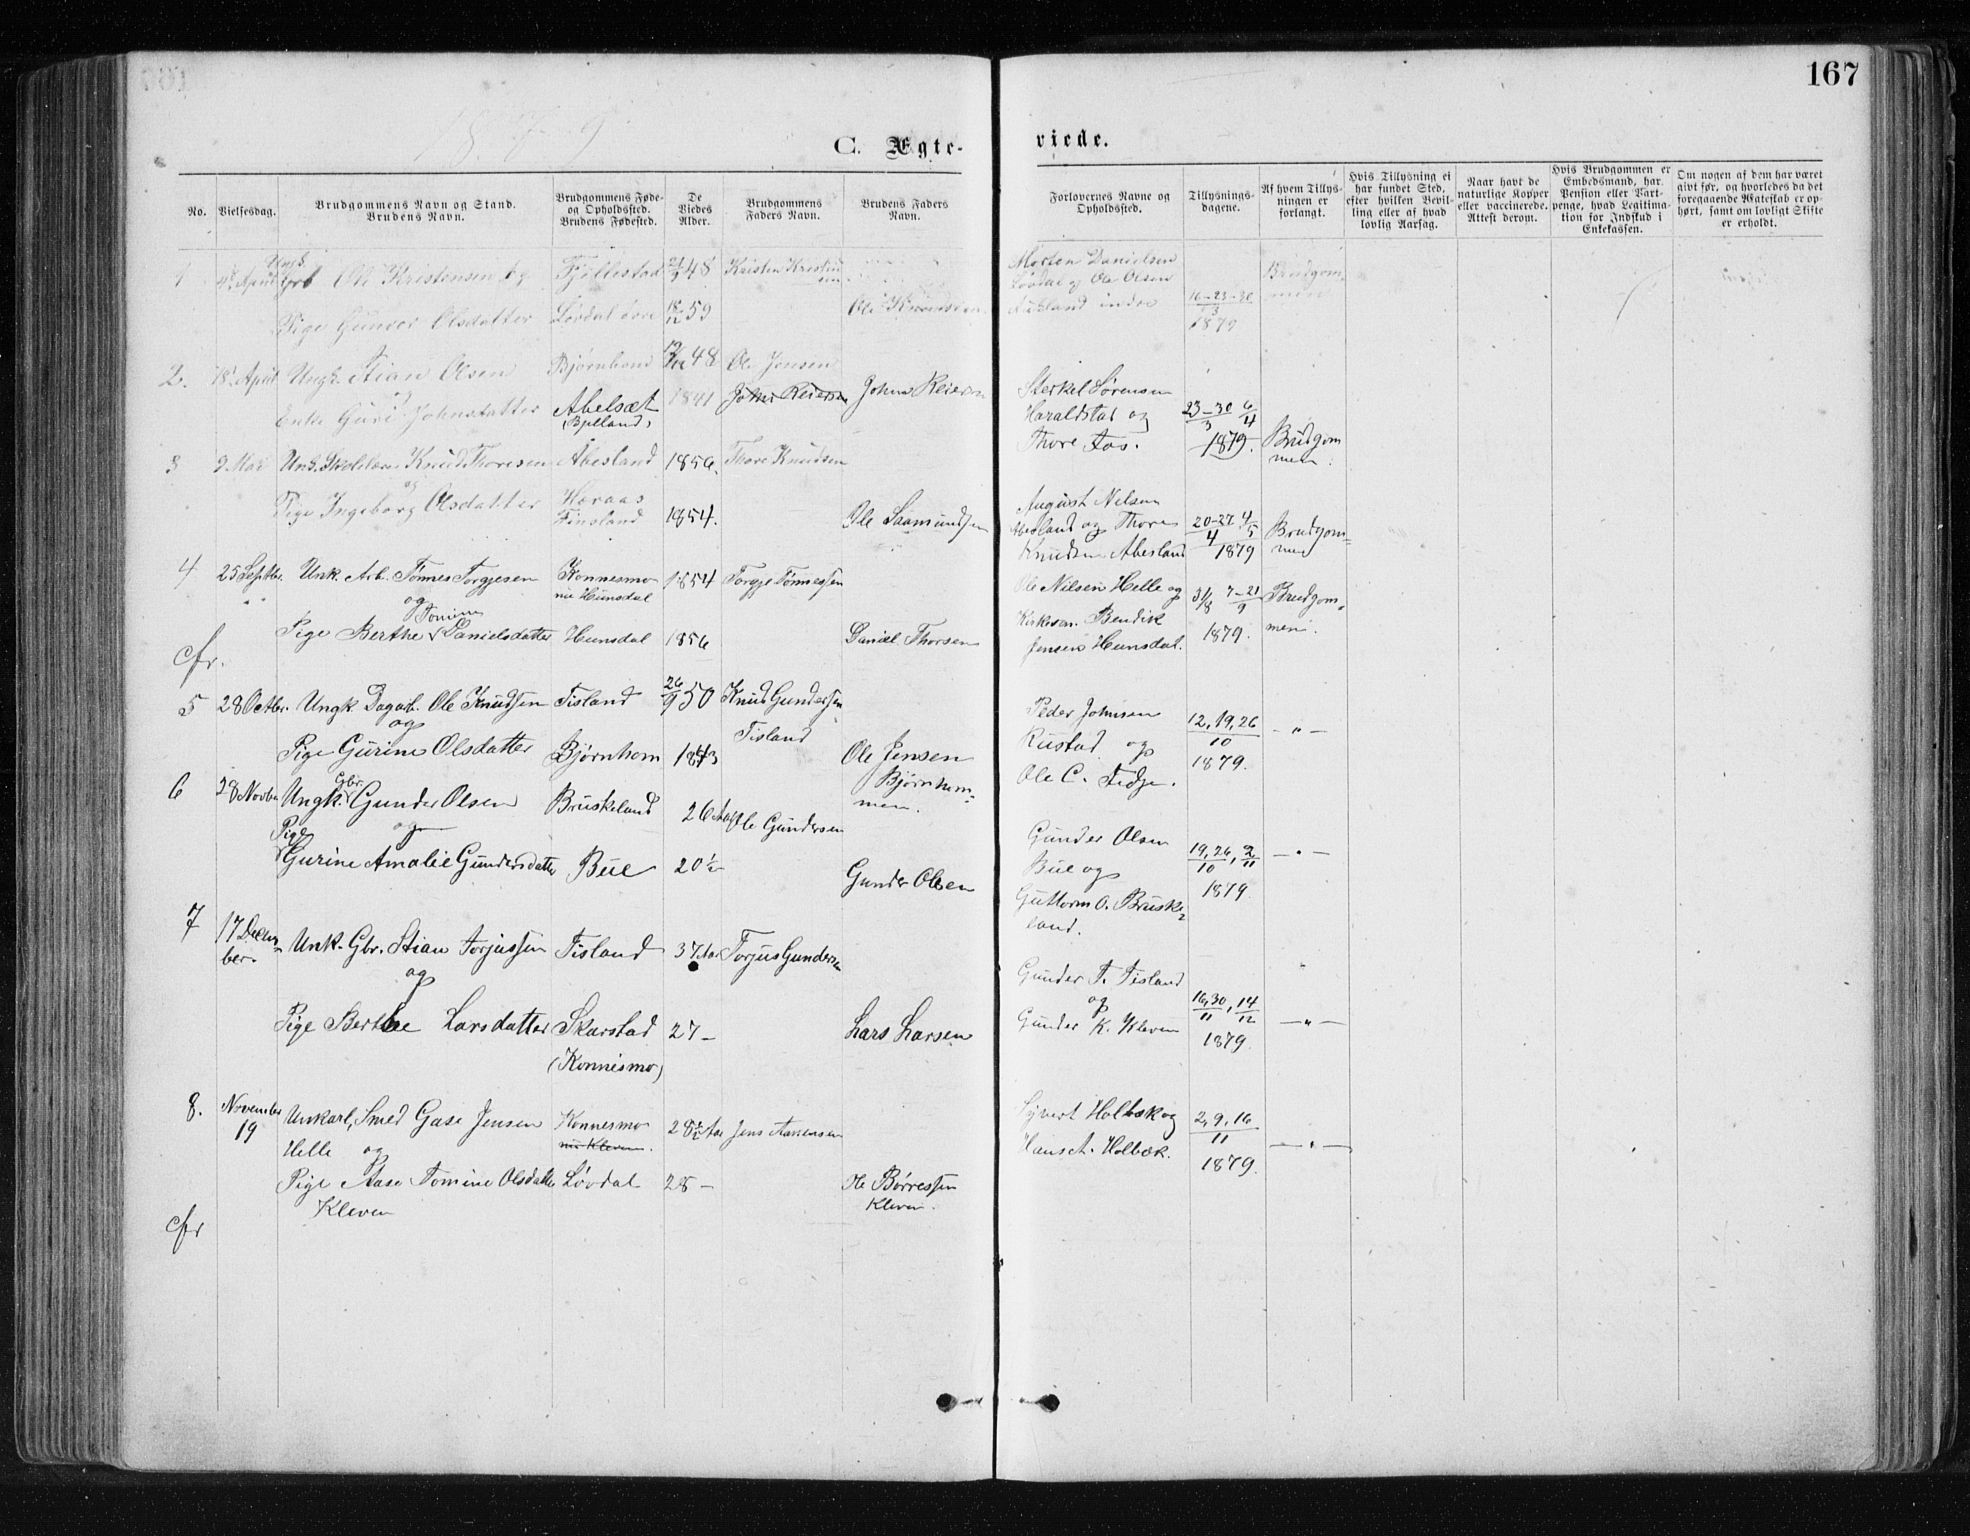 167
1879
C. Ægte-
viede.
No.
Vielsesdag.
Brudgommens Navn og Stand.
Brudens Navn.
Brudgommens Føde-
og Opholdssted.
Brudens Fødested.
De
Viedes
Alder.
Brudgommens
Faders Navn.
Brudens Faders
Navn.
Forlovernes Navne og
Opholdssted.
Tillysnings-
dagene.
Af hvem Tillys-
ningen er
forlangt.
Hvis Tillysning ei
har fundet Sted,
efter hvilken Bevil-
ling eller af hvad
lovlig Aarsag.
Naar havt de
naturlige Kopper
eller vaccinerede.
Attest derom.
Hvis Brudgommen er
Embedsmand, har
Pension eller Vart-
penge, hvad Legitima-
tion for Indskud i
Enkekassen.
Om nogen af dem har været
givt før, og hvorledes da det
foregaaende Ægteskab er op-
hørt, samt om lovligt Skifte
er erholdt.
1 April Ungk. Ole Kristensen og Fjellestad 48 Kristen
Pige Gunvor Olsdatter Løvdal 59 Ole
Morten Danielsen
Løvdal og Ole Olsen
Aukland 16-23-30/3 1879 Brudgom-
men
2. 18 April Ungk. Stian Olsen Bjørnhom 48 Ole Jensen
og
Enke Guri Johnsdatter Abelsæt 1841 John Reiersen John Reiersen
(Bjelland)
Sterkel Sørensen
Haraldstad og 23-30/3 6/4
Thore Aas. 1879. Brudgom
men.
3 9 Mai Knud Thoresen Abesland 1856. Thore Knudsen
og
Pige Ingeborg Olsdatter Haraas
Finsland 1854. Ole Saamundsen
August Nilsen
Abesland og Thore 20-27/4 4/5 Brudgom=
Knudsen Abesland 1879 men
4 25 Septbr. Unk. Arb. Tønnes Torgjesen Konnesmo 1854 Torgje Tønnessen
og nu Hunsdal
Tomine
Pige Berthe Danielsdatter Hunsdal 1856 Daniel Thorsen
cfr.
Ole Nilsen Helle og 31/8 7-21/9 Brudgom-
Kirkesan. Bendik 1879. men.
Jensen Hunsdal.
5 28 Octbr. Ungk. Dagarb. Ole Knudsen Tisland 26/9 50 Knud Gundersen
og Tisland
Pige Gurine Olsdatter Bjørnhom 1843 Ole Jensen
Bjørnhom=
men.
Peder Johnsen 12, 19, 26/10 — „ —
Rustad og 1879.
Ole C. Fidje.
6 28 Novbr Ungk. Gbr. Gunder Olsen Bruskeland 26 Aar Ole Gundersen
og
Pige
Gurine Amalie Gundersdatter Bue 20½ Gunder Olsen
Gunder Olsen 19, 26/10, 2/11 — „ —
Bue og 1879
Guttorm O. Bruske=
land.
7 17 Decem-
ber. Unk. Gbr. Stian Torjussen Tisland 37 Aar Torjus Gundersen
og
Pige Berthe Larsdatter Skarstad 27 — Lars Larsen
(Konnesmo)
Gunder T. Tisland
og 16, 30/11, 14/12 — „ —
Gunder K. Kleven 1879.
8. November
19 Unkarl, Smed Gase Jensen Konnesmo 28½ Aar Jens Aanensen
Helle og nu Kleven.
Pige Aase Tomine Olsdatter Løvdal 28 — Ole Børressen
Kleven Kleven.
cfr
Syvert Holbæk og 2, 9, 16/11 — „ —
Hans A. Holbæk. 1879.